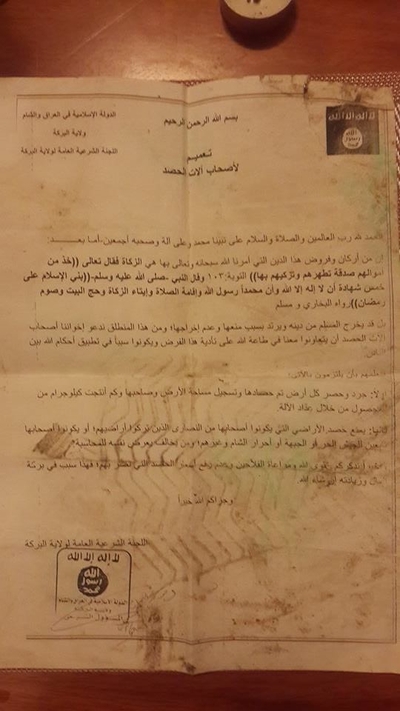 الدولة الإسلامية في العراق والشام
ولاية البركة
اللجنة الشرعية العامة لولاية البركة
بسم الله الرحمن الرحيم
لا إله إلا الله
الله
رسول
محمد
تعميم
لأصحاب آلات الحصد
الحمد لله رب العالمين والصلاة والسلام على نبينا محمد وعلى آله وصحبه أجمعين-أما بعد:
إن من أركان وفروض هذا الدين التي أمرنا الله سبحانه وتعالى بها هي الزكاة فقال تعالى ((خذ من
أموالهم صدقة تطهرهم وتزكيهم بها)) التوبة:١٠٣ وقال النبي -صلى الله عليه وسلم-((بني الإسلام على
خمس شهادة أن لا إله إلا الله وأن محمداً رسول الله وإقامة الصلاة وإيتاء الزكاة وحج البيت وصوم
رمضان))رواه البخاري و مسلم
قد يخرج المسلم من دينه ويرتد بسبب منعها وعدم إخراجها؛ ومن هذا المنطلق ندعو إخواننا أصحاب
آلات الحصد أن يتعاونوا معنا في طاعة الله على تأدية هذا الفرض ويكونوا سبباً في تطبيق أحكام الله بين
بأن يلتزمون بالآتي:
أولا: جرد وحصر كل أرض تم حصادها وتسجيل مساحة الأرض وصاحبها وكم أنتجت كيلوجرام من
المحصول من خلال عداد الآلة.
ثانيا: يمنع حصد الأراضي التي يكونوا أصحابها من النصارى الذين تركوا أراضيهم؛ أو يكونوا أصحابها
الجيش الحر أو الجبهة أو أحرار الشام وغيرهم؛ ومن يخالف يعرض نفسه للمحاسبة
الله ومراعاة الفلاحين وعدم رفع أسعار الحصد التي تضر بهم؛ فهذا سبب في بركة
وزيادته إن شاء الله
وجزاكم الله خيرا
اللجنة الشرعية العامة لولاية البركة
لا إله إلا الله
الله
رسول
محمد